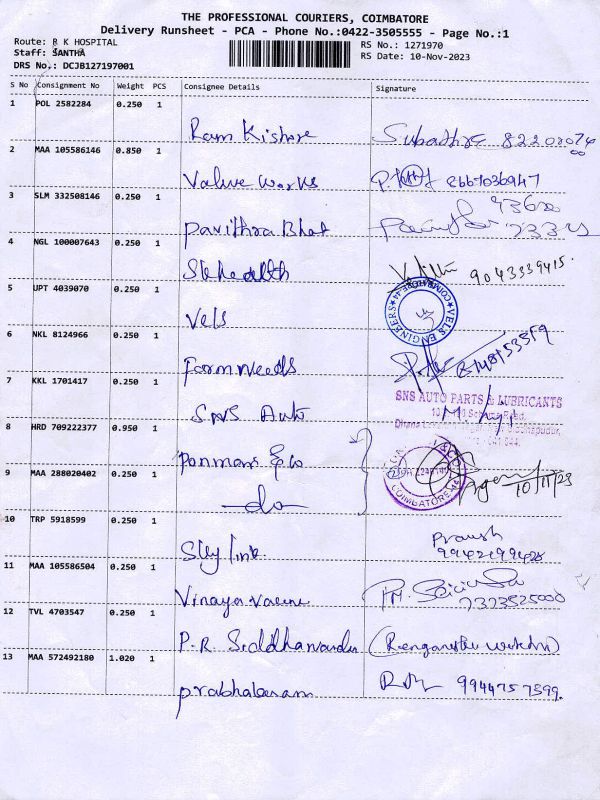 THE PROFESSIONAL COURIERS, COIMBATORE
Delivery Runsheet - PCA - Phone No.:0422-3505555 - Page No.:1
Route: R K HOSPITAL
Staff: SANTHA
DRS No.: DCJB127197001
RS No.: 1271970
RS Date: 10-Nov-2023
S No Consignment No Weight PCS Consignee Details Signature
1 POL 2582284 0.250 1
Ram Kishore
2 MAA 105586146 0.850 1
Value works 8667036947
3 SLM 332508146 0.250 1
Pavithra Bhat
4 NGL 100007643 0.250 1
9043339415.
5 UPT 4039070 0.250 1
Vels
VELS ENGINEERS
6 NKL 8124966 0.250 1
Farm Needs
7 KKL 1701417 0.250 1
SNS Auto
SNS AUTO PARTS & LUBRICANTS
8 HRD 709222377 0.950 1
Ponmani & Co
9 MAA 288020402 0.250 1
-do-
COIMBATORE
10/11/23
10 TRP 5918599 0.250 1
Sky link
11 MAA 105586504 0.250 1
7373525000
12 TVL 4703547 0.250 1
P.R. Siddhanandu
13 MAA 572492180 1.020 1
Prabhakaram 9944757599.